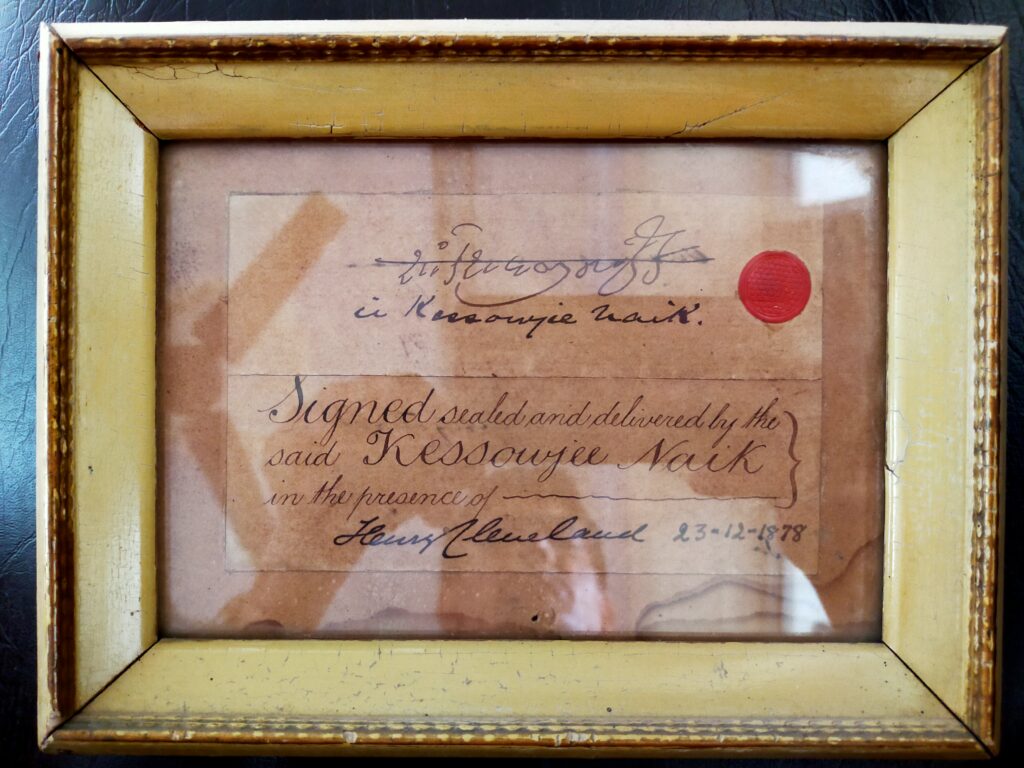 Kessowjee Naik.
Signed sealed and delivered by the
said Kessowjee Naik
in the presence of
Henry Cleveland 23-12-1878